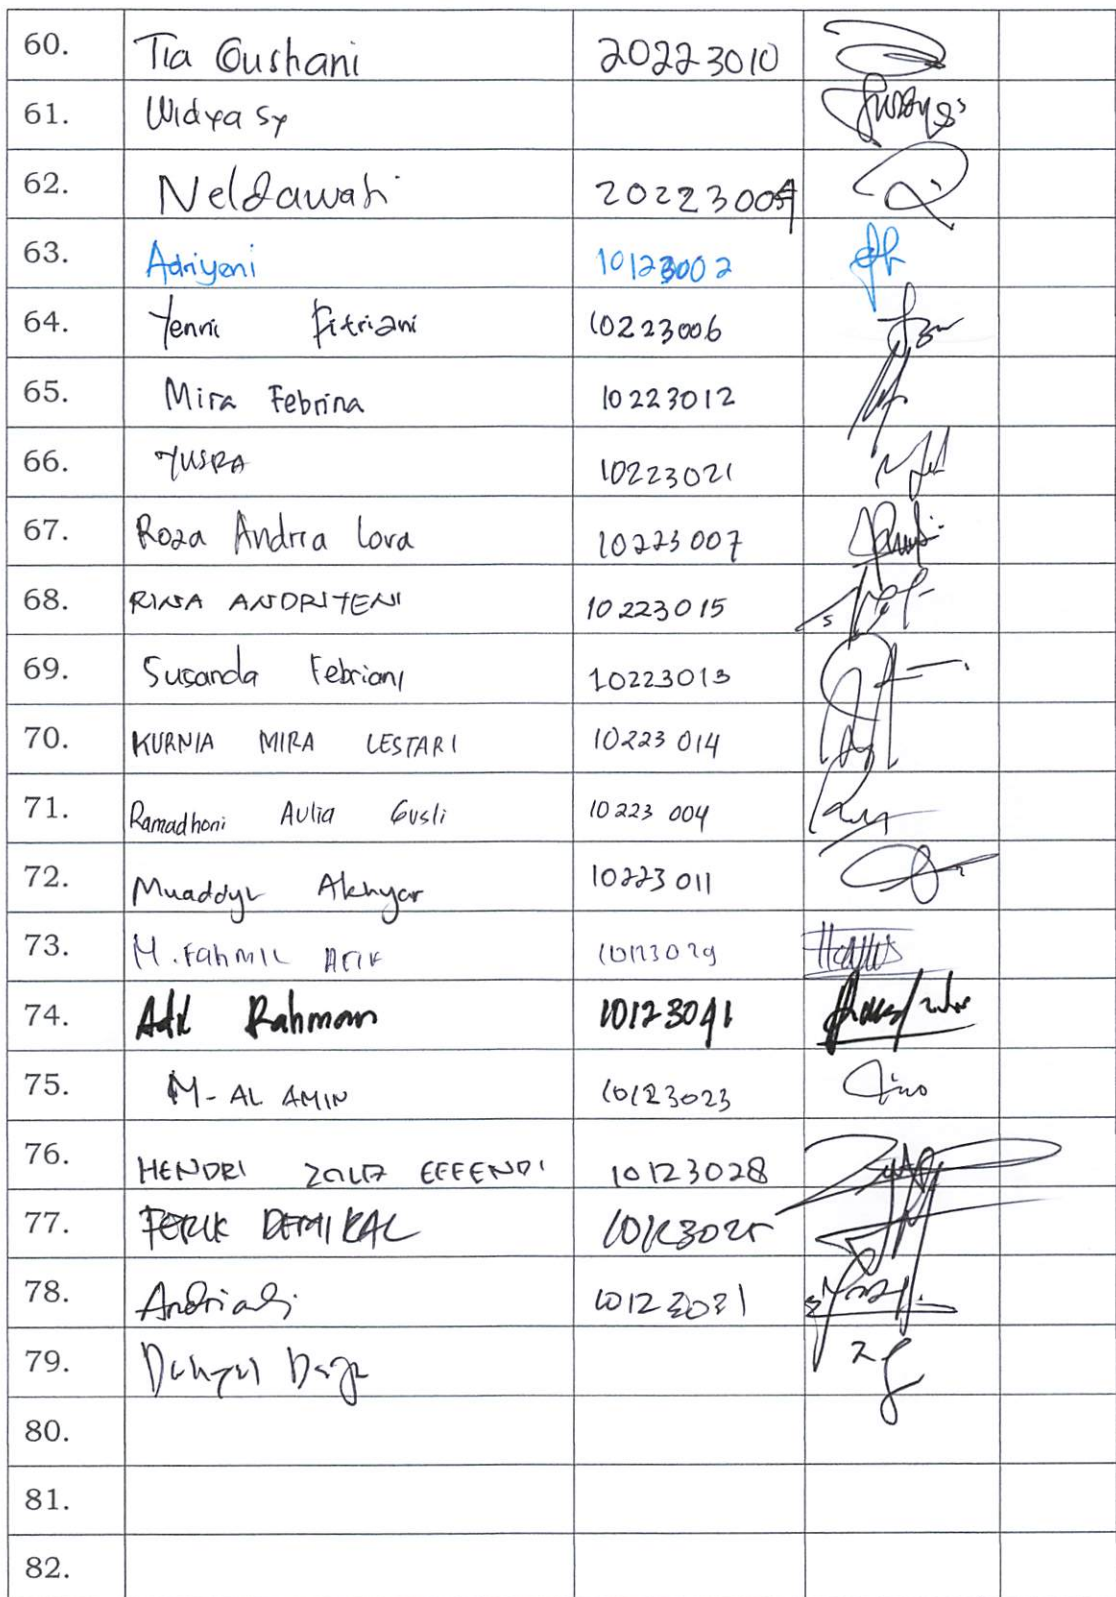 60. Tia Gushani 20223010
61. Widya Sy
62. Neldawati 20223004
63. Adriyeni 10123002
64. Yenni Fitriani 10223006
65. Mira Febrina 10223012
66. YUSRA 10223021
67. Roza Andria Lova 10223007
68. RINA ANDRIYENI 10223015
69. Susanda Febriani 10223013
70. KURNIA MIRA LESTARI 10223014
71. Ramadhoni Aulia Gusli 10223004
72. Muaddyl Akhyar 10223011
73. M. Fahmil Arif 10123029
74. Adil Rahman 10123041
75. M- AL AMIN 10123023
76. HENDRI EFFENDI 10123028
77. 10123025
78. Andriadi 10123031
79.
80.
81.
82.